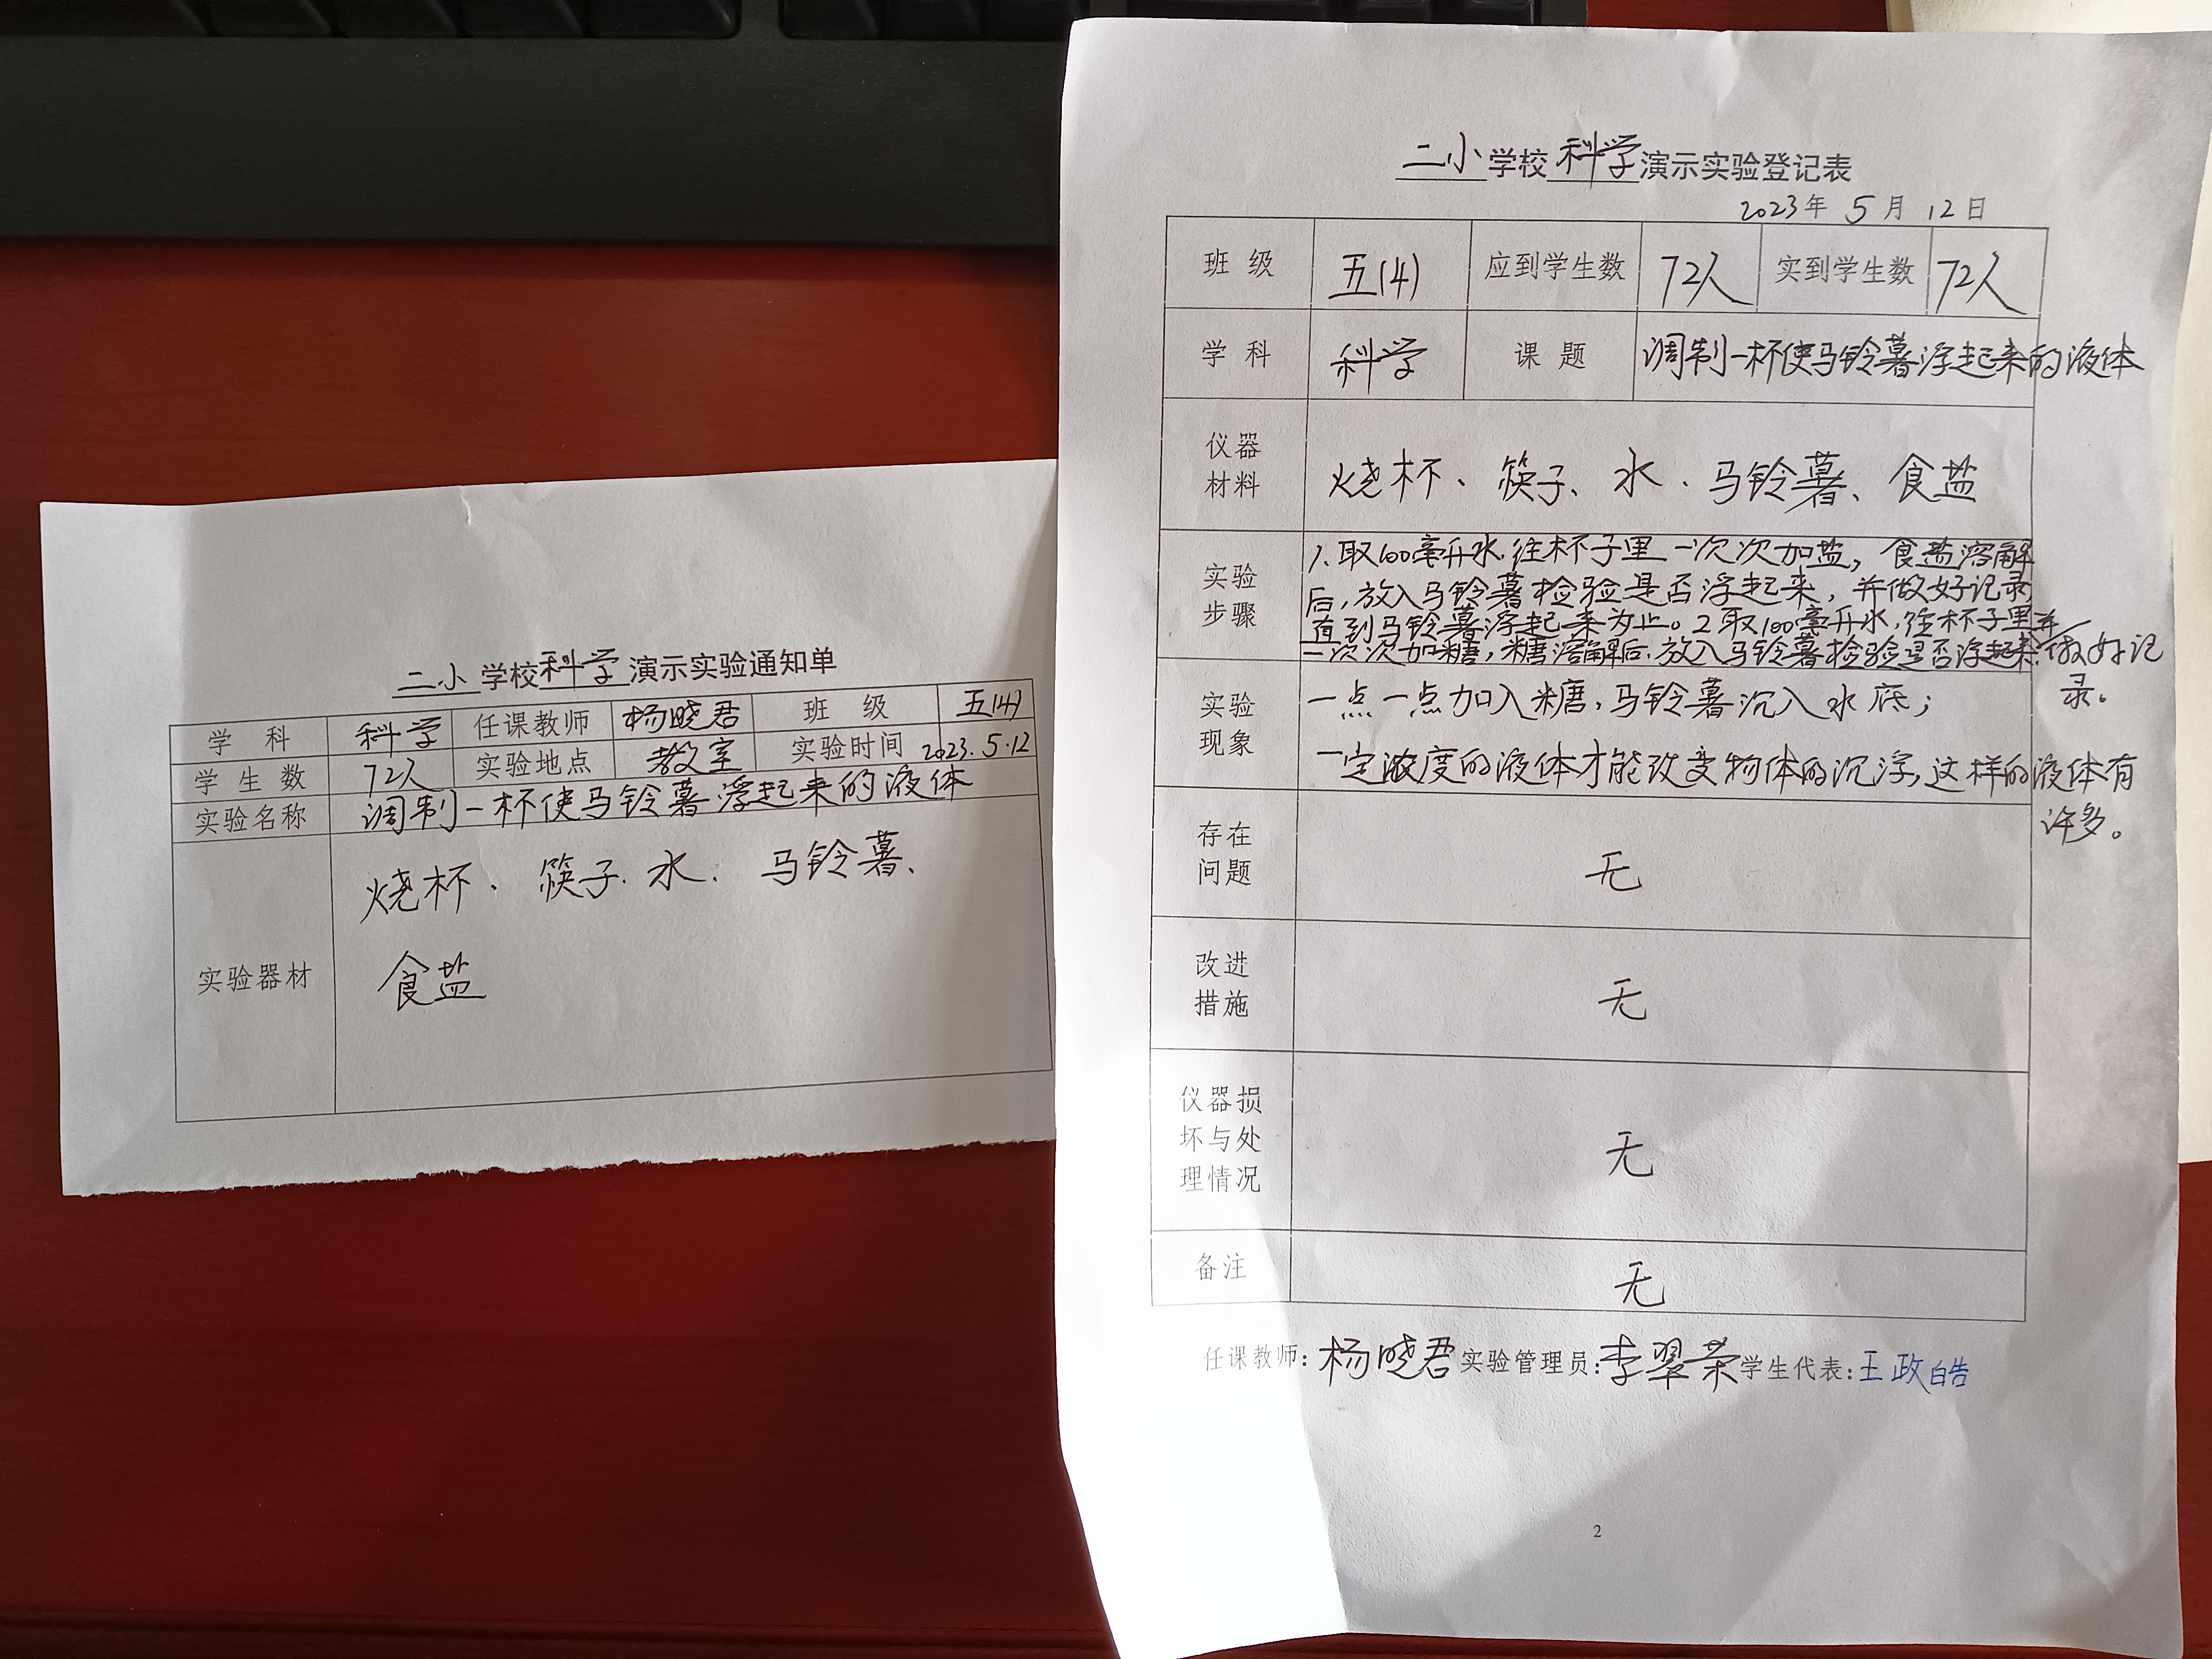 二小学校科学演示实验通知单
学 科 科学 任课教师 杨晓君 班 级 五(4)
学 生 数 72人 实验地点 教室 实验时间 2023.5.12
实验名称 调制一杯使马铃薯浮起来的液体
实验器材 烧杯、筷子、水、马铃薯、
食盐
二小学校科学演示实验登记表
2023年 5月 12日
班 级 五(4) 应到学生数 72人 实到学生数 72人
学 科 科学 课 题 调制一杯使马铃薯浮起来的液体
仪器
材料
烧杯、筷子、水、马铃薯、食盐
实验
步骤
1.取100毫升水,往杯子里一次次加盐,食盐溶解
后,放入马铃薯检验是否浮起来,并做好记录
直到马铃薯浮起来为止。2取100毫升水,往杯子里
一次次加糖,糖溶解后,放入马铃薯检验是否浮起来,并做好记
录。
实验
现象
一点一点加入糖,马铃薯沉入水底;
一定浓度的液体才能改变物体的沉浮,这样的液体有
许多。
存在
问题
无
改进
措施
无
仪器损
坏与处
理情况
无
备注
无
任课教师:杨晓君 实验管理员:李翠荣 学生代表:王政皓
2